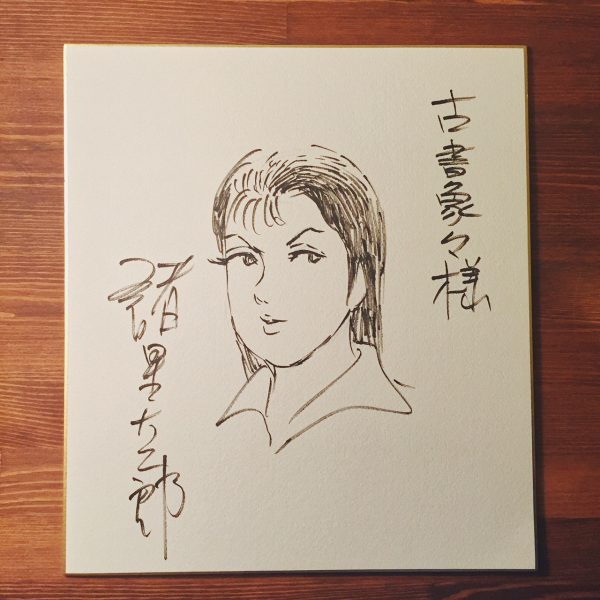 古書象々様
諸星大二郎